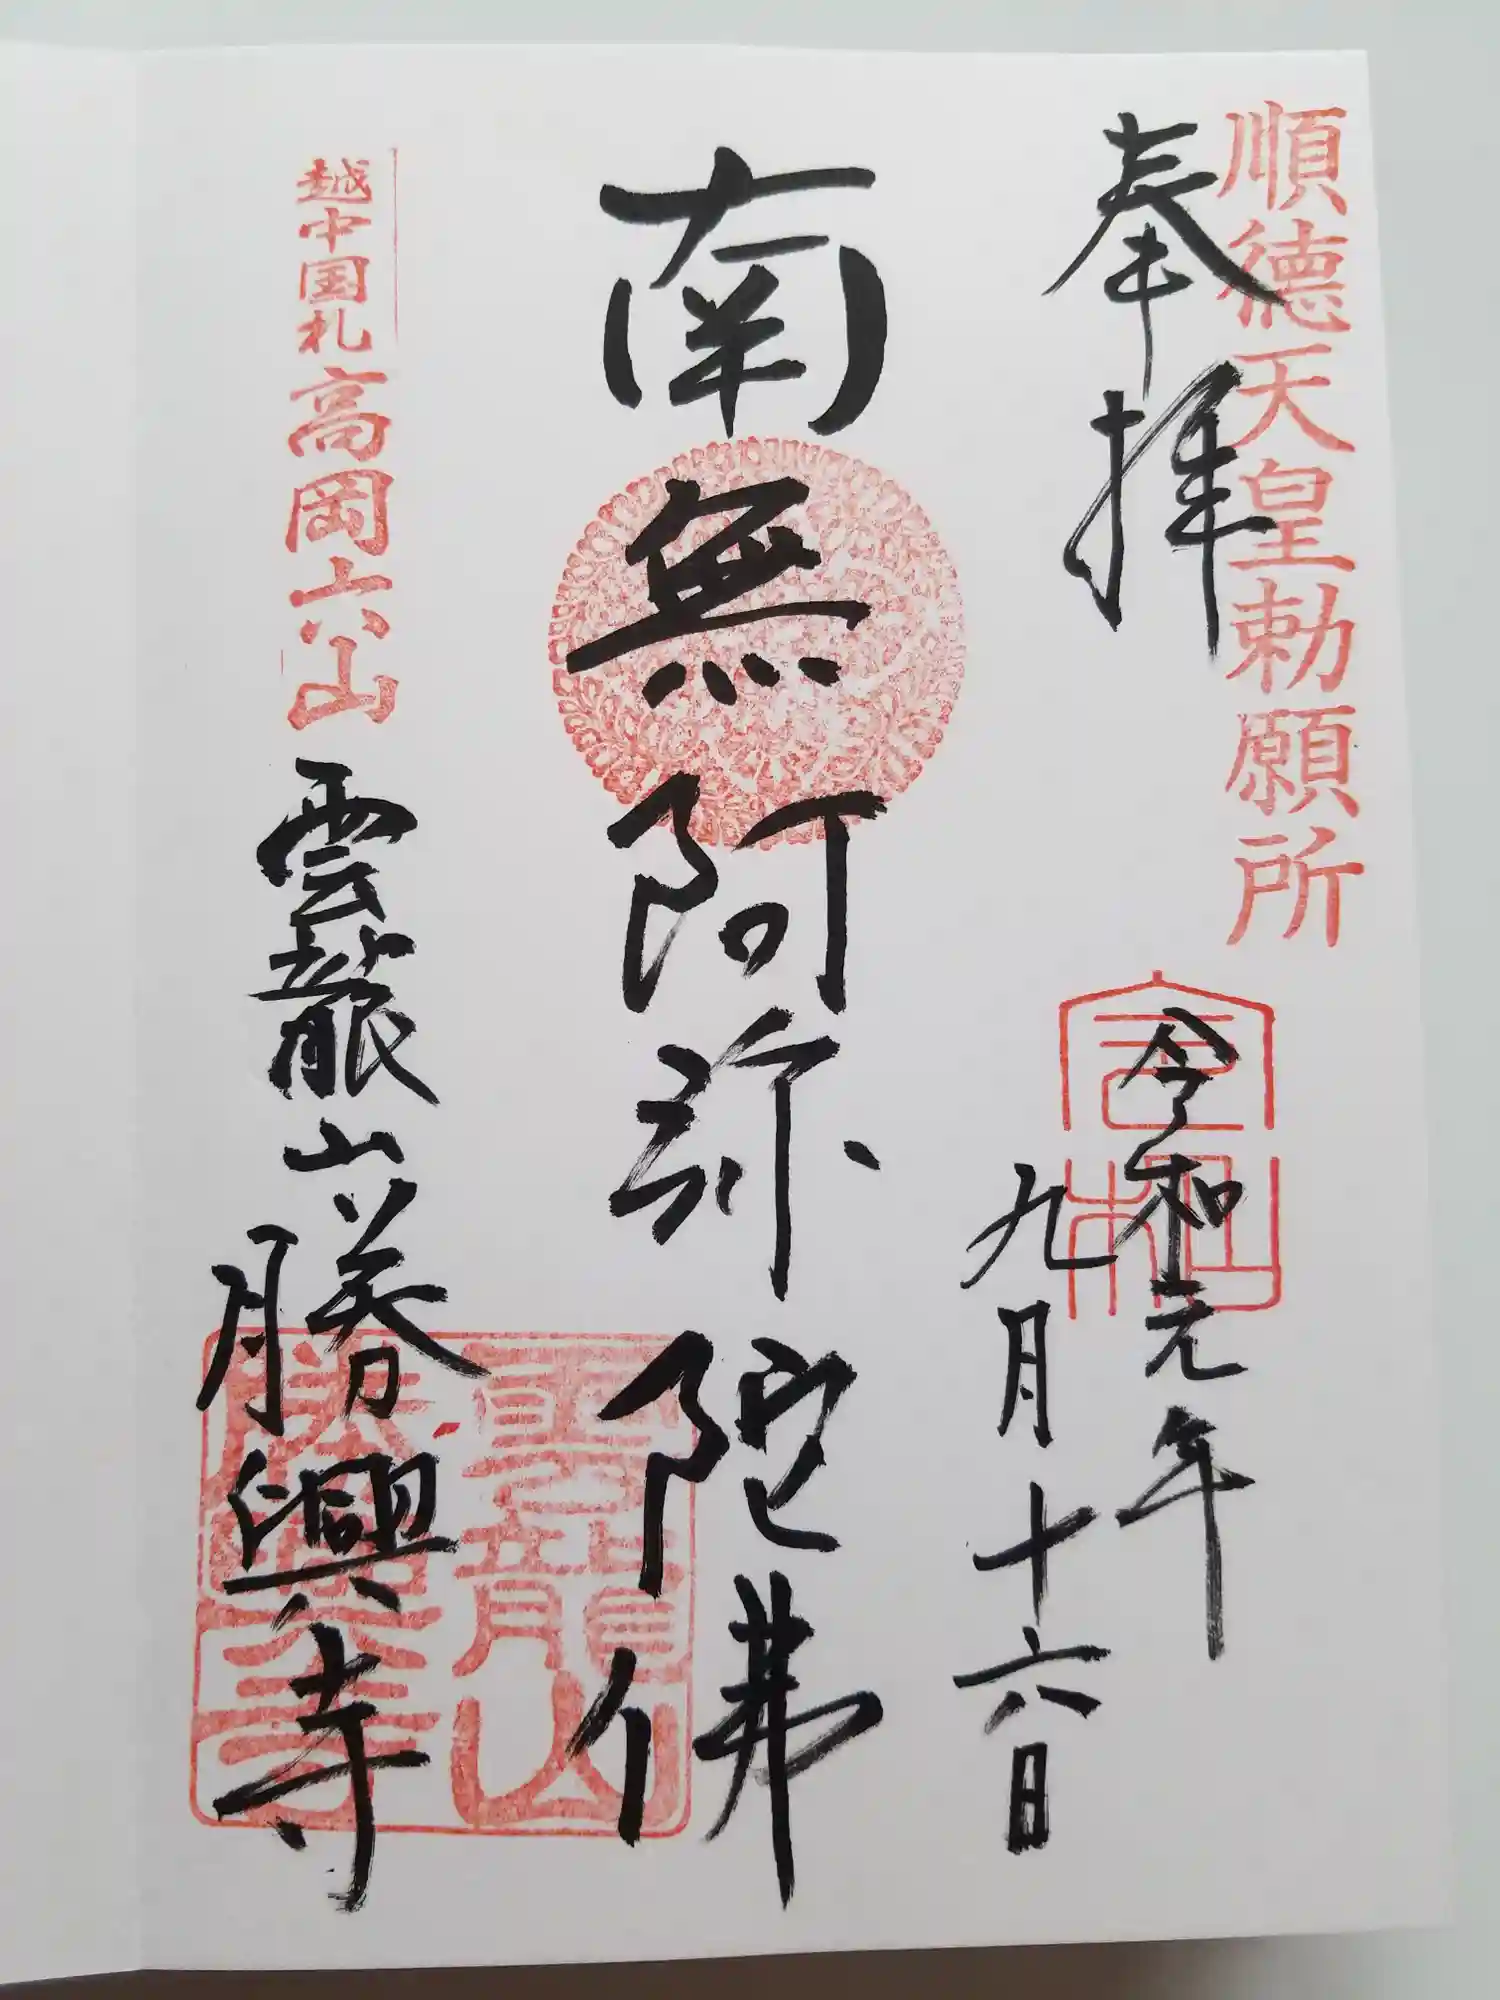 順德天皇勅願所
奉拝
令和元年
九月十六日
南無阿弥陀佛
越中国札
高岡六山
雲龍山勝興寺
雲龍山
勝興寺